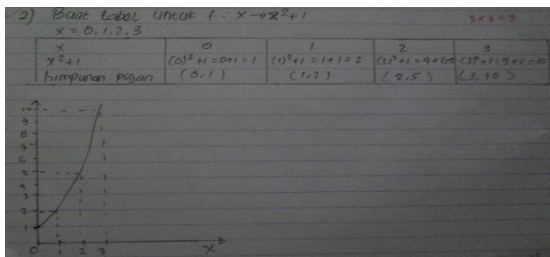 2) Buat tabel untuk f : x → x² + 1
3 x 3 = 9
x = 0, 1, 2, 3
x 0 1 2 3
x² + 1 (0)² + 1 = 0 + 1 = 1 (1)² + 1 = 1 + 1 = 2 (2)² + 1 = 4 + 1 = 5 (3)² + 1 = 9 + 1 = 10
himpunan psgan (0,1) (1,2) (2,5) (3,10)
10
9
8
7
6
5
4
3
2
1
0 1 2 3 x